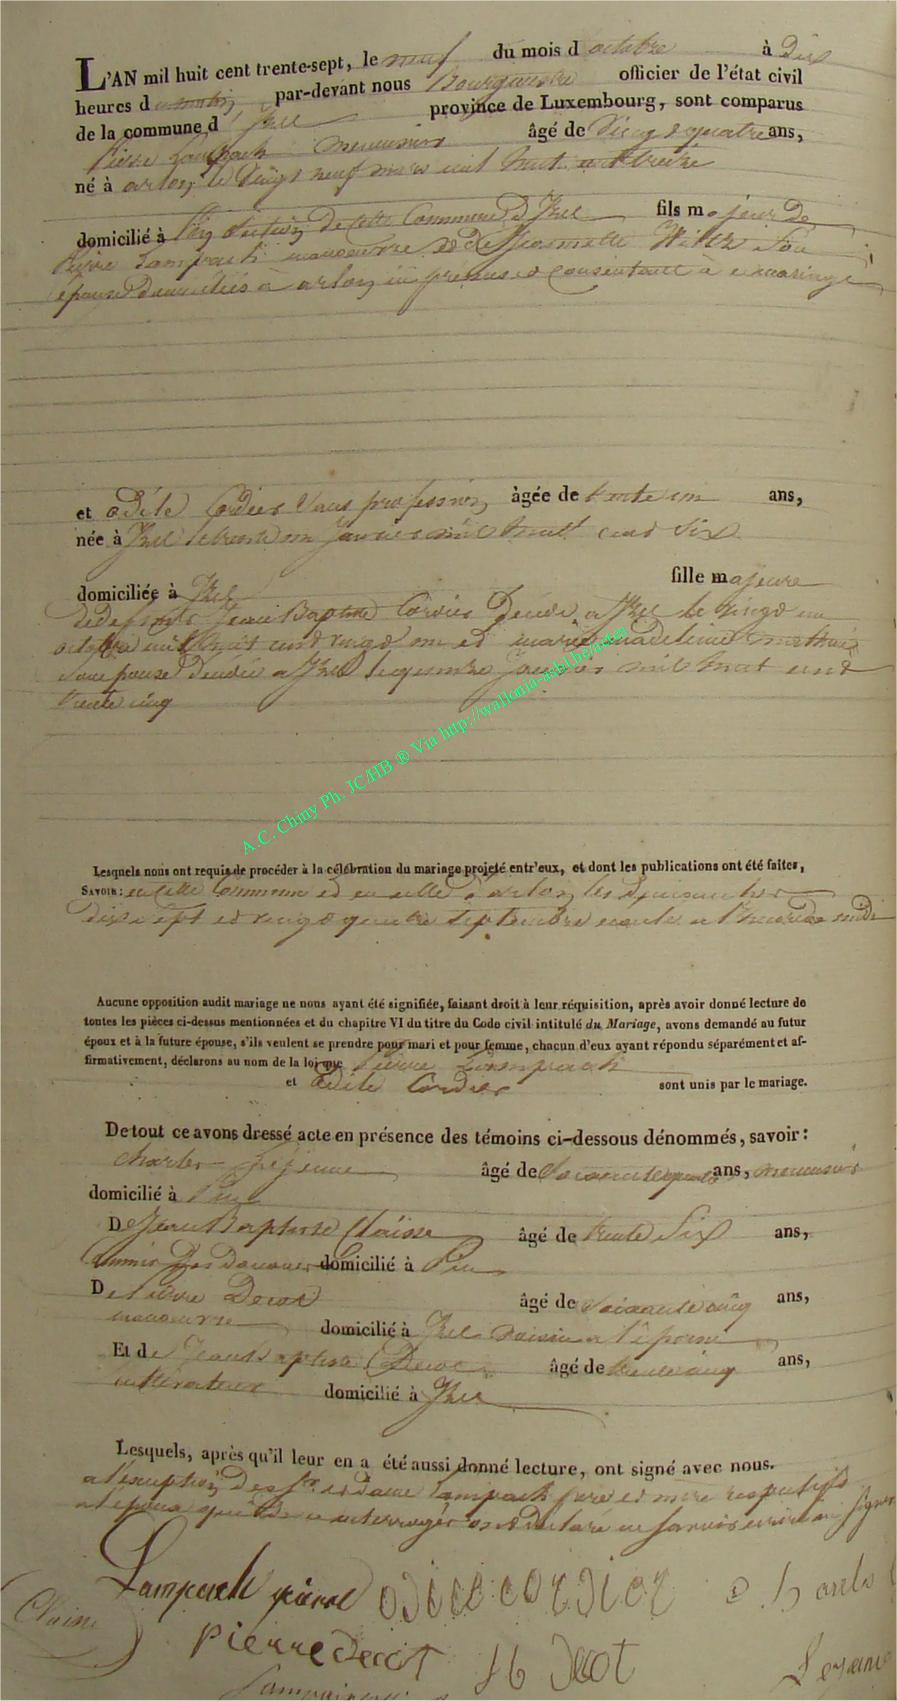 L'AN mil huit cent trente-sept, le neuf du mois d octobre à Dix
heures d u matin par-devant nous Bourguemstre officier de l'état civil
de la commune d' Izel province de Luxembourg, sont comparus
Pierre Lampach menuisier âgé de Vingt quatre ans,
né à arlon, le vingt neuf mars mil huit cent treize
domicilié à en cette Commune d'Izel fils majeur de
Pierre Lampach manoeuvre et de Jeannette Son
épouse domiciliés à arlon ici présens et consentant à ce mariage
et Odile Cordier Sans profession âgée de trente un ans,
née à Izel le trente un Janvier mil huit cent Six
domiciliée à Izel fille majeure
de defunts Jean Baptiste Cordier Décédé a Izel le vingt un
octobre mil huit cent vingt un et marie madeleine mathieu
Son epouse Decedée a Izel le quinze Janvier mil huit cent
trente cinq
A.C. Chiny Ph. JC/HB ® Via http://wallonia-asbl.be/actes
Lesquels nous ont requis de procéder à la célébration du mariage projeté entr'eux, et dont les publications ont été faites,
SAVOIR: en cette Commune et en celle d'arlon les Dimanches
dix sept et vingt quatre Septembre a l'heure de midi
Aucune opposition audit mariage ne nous ayant été signifiée, faisant droit à leur réquisition, après avoir donné lecture de
toutes les pièces ci-dessus mentionnées et du chapitre VI du titre du Code civil intitulé du Mariage, avons demandé au futur
époux et à la future épouse, s'ils veulent se prendre pour mari et pour femme, chacun d'eux ayant répondu séparément et af-
firmativement, déclarons au nom de la loi que Pierre Lampach
et Odile Cordier sont unis par le mariage.
De tout ce avons dressé acte en présence des témoins ci-dessous dénommés, savoir:
Charles Lejeune âgé de ans, menuisier
domicilié à Pin
De Jean Baptiste Claisse âgé de trente Six ans,
Commis Des Douanes domicilié à Pin
De Pierre Decot âgé de Soixante cinq ans,
manoeuvre domicilié à Izel voisin a l'épouse
Et de Jean Baptiste Decot âgé de trente cinq ans,
cultivateur domicilié à Izel
Lesquels, après qu'il leur en a été aussi donné lecture, ont signé avec nous.
a l'exception des Sr. et dame Lampach père et mère respectifs
a l'époux qui de ce interrogés ont déclaré ne savoir écrire ni signer
Lampach pierre odile cordier
Claisse
pierre Decot JB Decot Lejeune